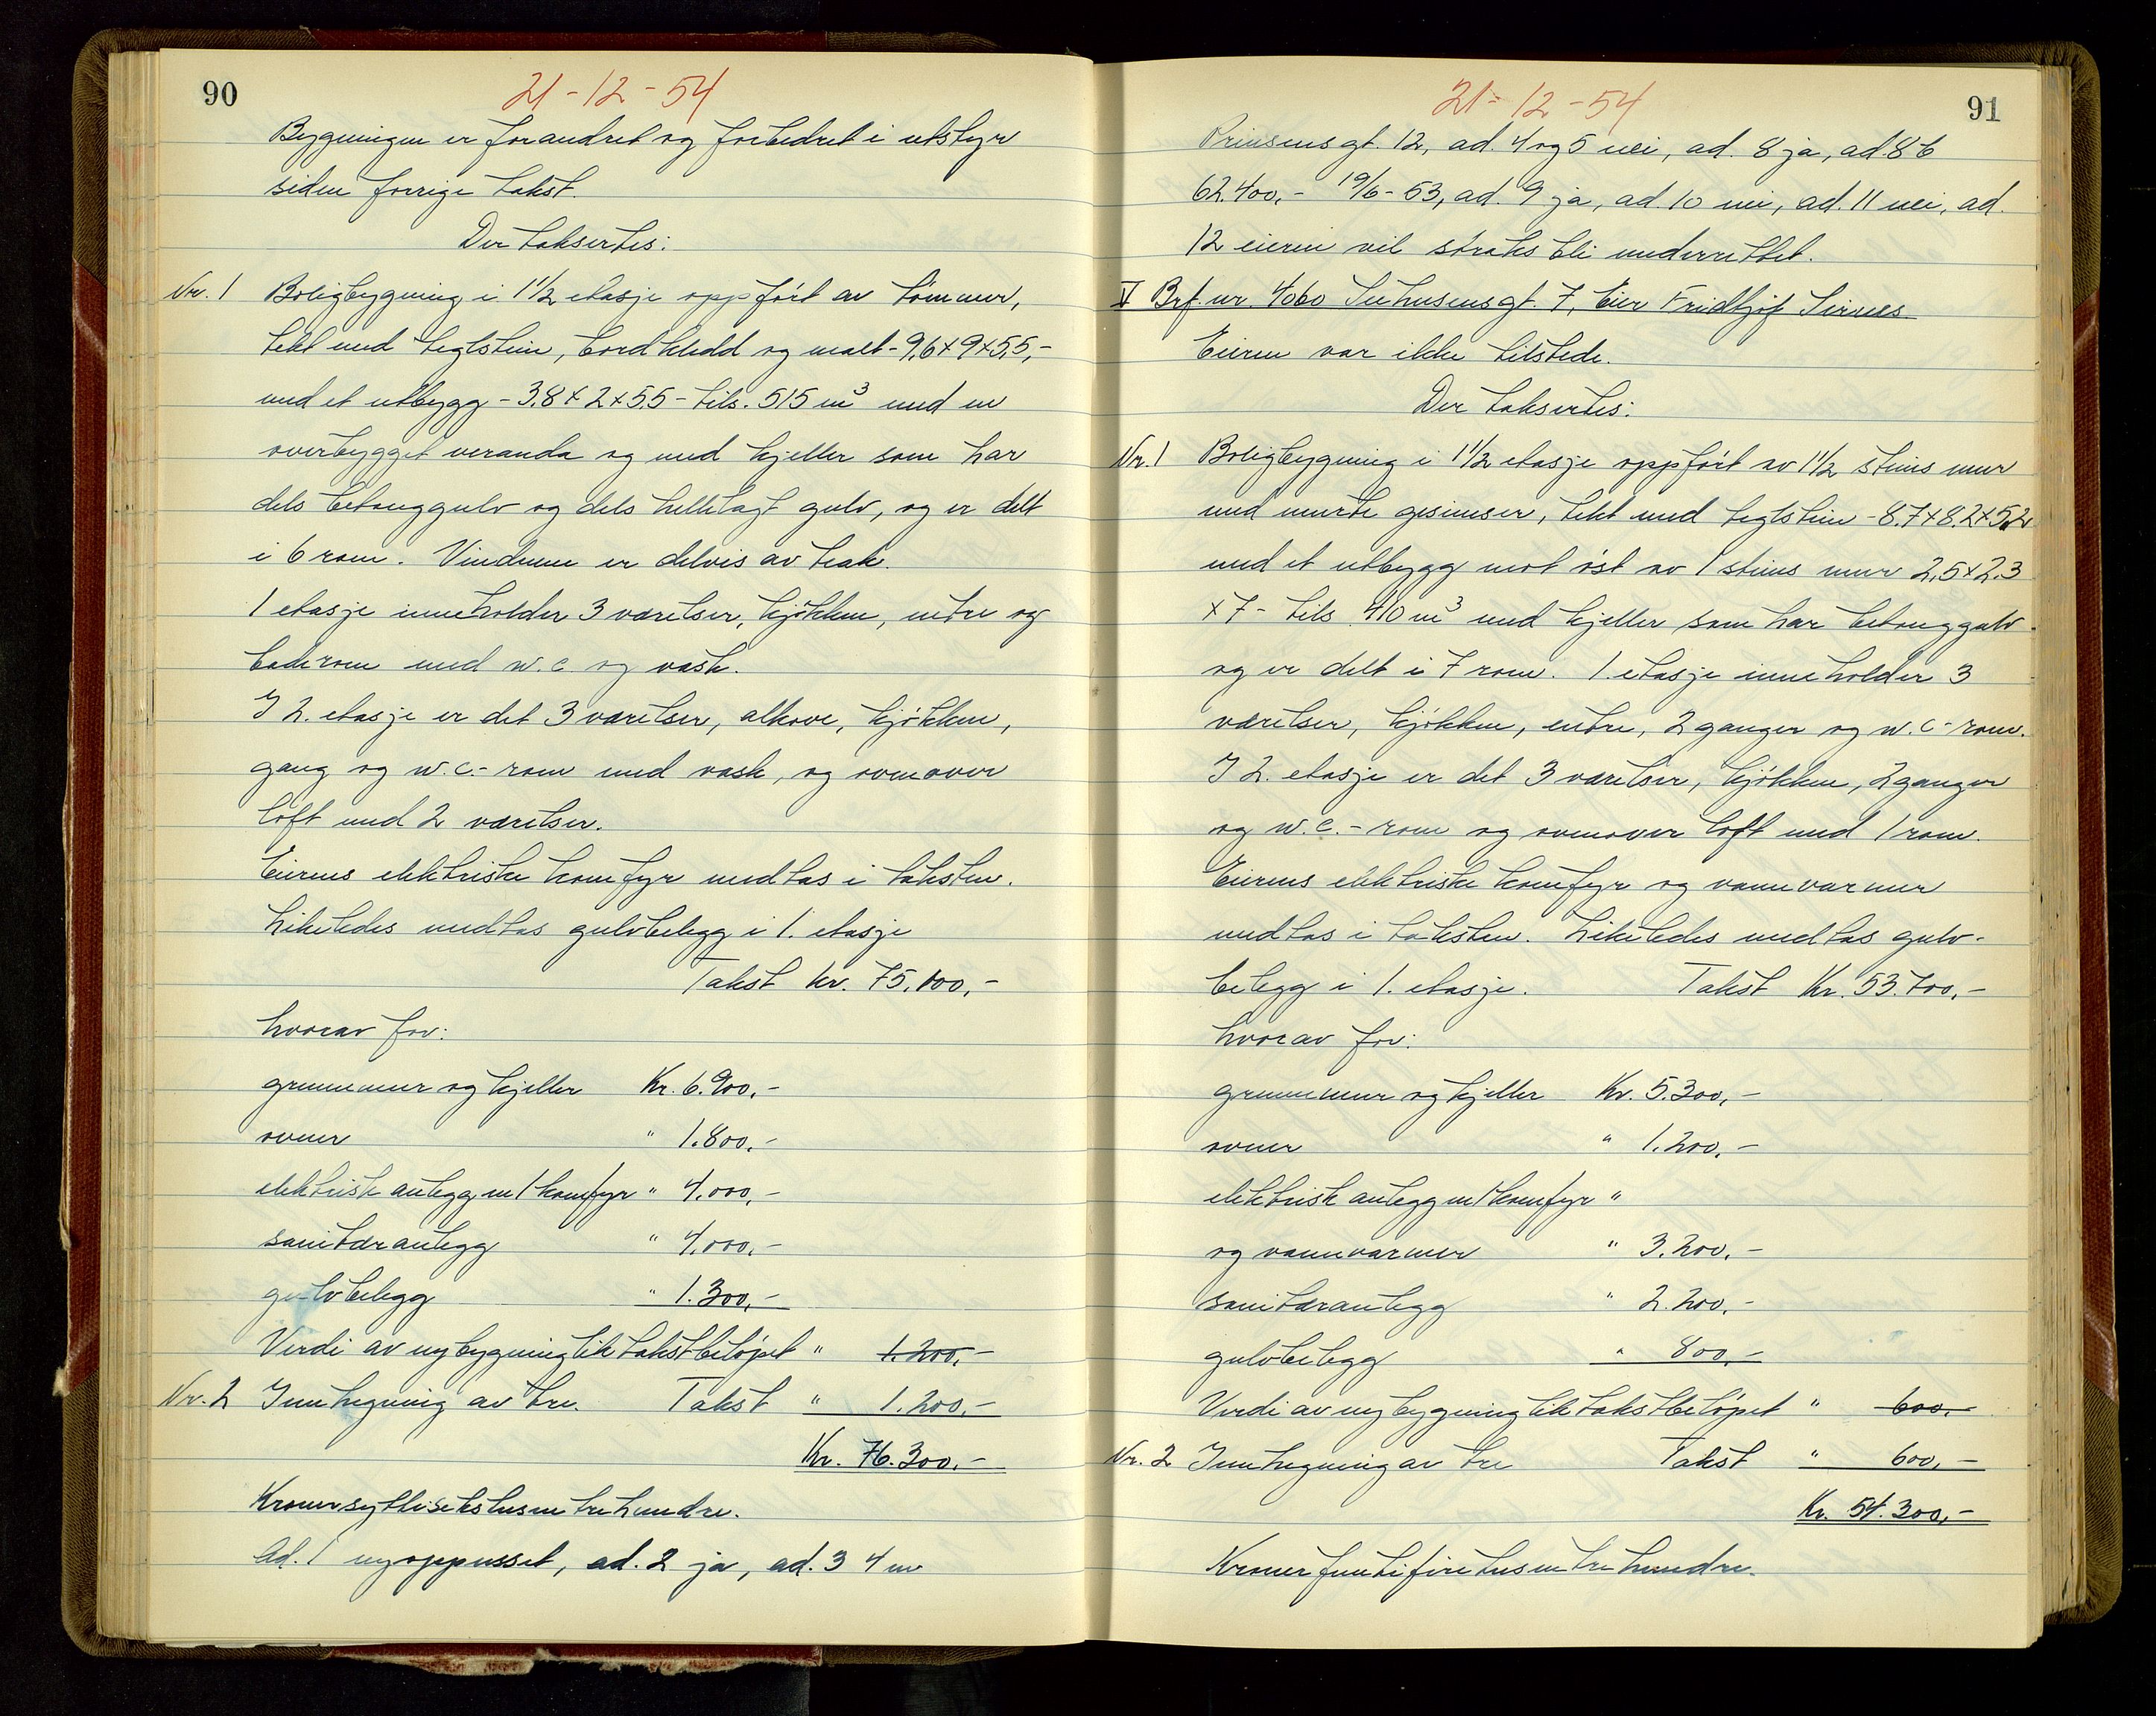 90
21-12-54
Bygningen er forandret og forbedret i utstyr
siden forrige takst.
Der taksertes:
Nr. 1 Boligbygning i 1 1/2 etasje oppført av tømmer,
tekt med teglstein, bordkledd og malt - 9,6 x 9 x 5,5,-
med et utbygg - 3,8 x 2 x 5,5 - tils. 515 m³ med en
overbygget veranda og med kjeller som har
dels betonggulv og dels hellelagt gulv, og er delt
i 6 rom. Vinduene er delvis av teak.
1 etasje inneholder 3 værelser, kjøkken, entre og
baderom med w.c. og vask.
I 2. etasje er det 3 værelser, alkove, kjøkken,
gang og w.c.-rom med vask, og ovenover
loft med 2 værelser.
Eierens elektriske komfyr medtas i taksten.
Likeledes medtas gulvbelegg i 1. etasje
Takst kr. 75.100,-
hvorav for:
grunnmur og kjeller Kr. 6.900,-
ovner " 1.800,-
elektrisk anlegg m/komfyr " 4.000,-
sanitæranlegg " 4.000,-
gulvbelegg " 1.300,-
Verdi av nybygning lik takstbeløpet " 1.200,-
Nr. 2 Innhegning av tre. Takst " 1.200,-
Kr. 76.300,-
Kroner syttisekstusentrehundre.
Ad. 1 nyoppusset, ad. 2 ja, ad. 3 4 m
91
21-12-54
Prinsensgt. 12, ad. 4 og 5 nei, ad. 8 ja, ad 8 b
62.400,- 19/6-53, ad. 9 ja, ad. 10 nei, ad. 11 nei, ad.
12 eieren vil straks bli underrettet.
V Brf. nr. 4060 Seehusensgt. 7, Eier Fridtjof Sirnes
Eieren var ikke tilstede.
Der taksertes:
Nr. 1 Boligbygning i 1 1/2 etasje oppført av 1 1/2 steins mur
med murte gesimser, tekt med teglstein - 8,7 x 8,2 x 5,2
med et utbygg mot øst av 1 steins mur 2,5 x 2,3
x 7 - tils. 410 m³ med kjeller som har betonggulv
og er delt i 7 rom. 1. etasje inneholder 3
værelser, kjøkken, entre, 2 ganger og w.c-rom.
I 2. etasje er det 3 værelser, kjøkken, 2 ganger
og w.c.-rom og ovenover loft med 1 rom.
Eierens elektriske komfyr og vannvarmer
medtas i taksten. Likeledes medtas gulv-
belegg i 1. etasje. Takst Kr. 53.700,-
hvorav for:
grunnmur og kjeller Kr. 5.300,-
ovner " 1.200,-
elektrisk anlegg m/komfyr "
og vannvarmer " 3.200,-
sanitæranlegg " 2.200,-
gulvbelegg " 800,-
Verdi av nybygning lik takstbeløpet " 600,-
Nr. 2 Innhegning av tre Takst " 600,-
Kr. 54.300,-
Kroner femtifiretusentrehundre.